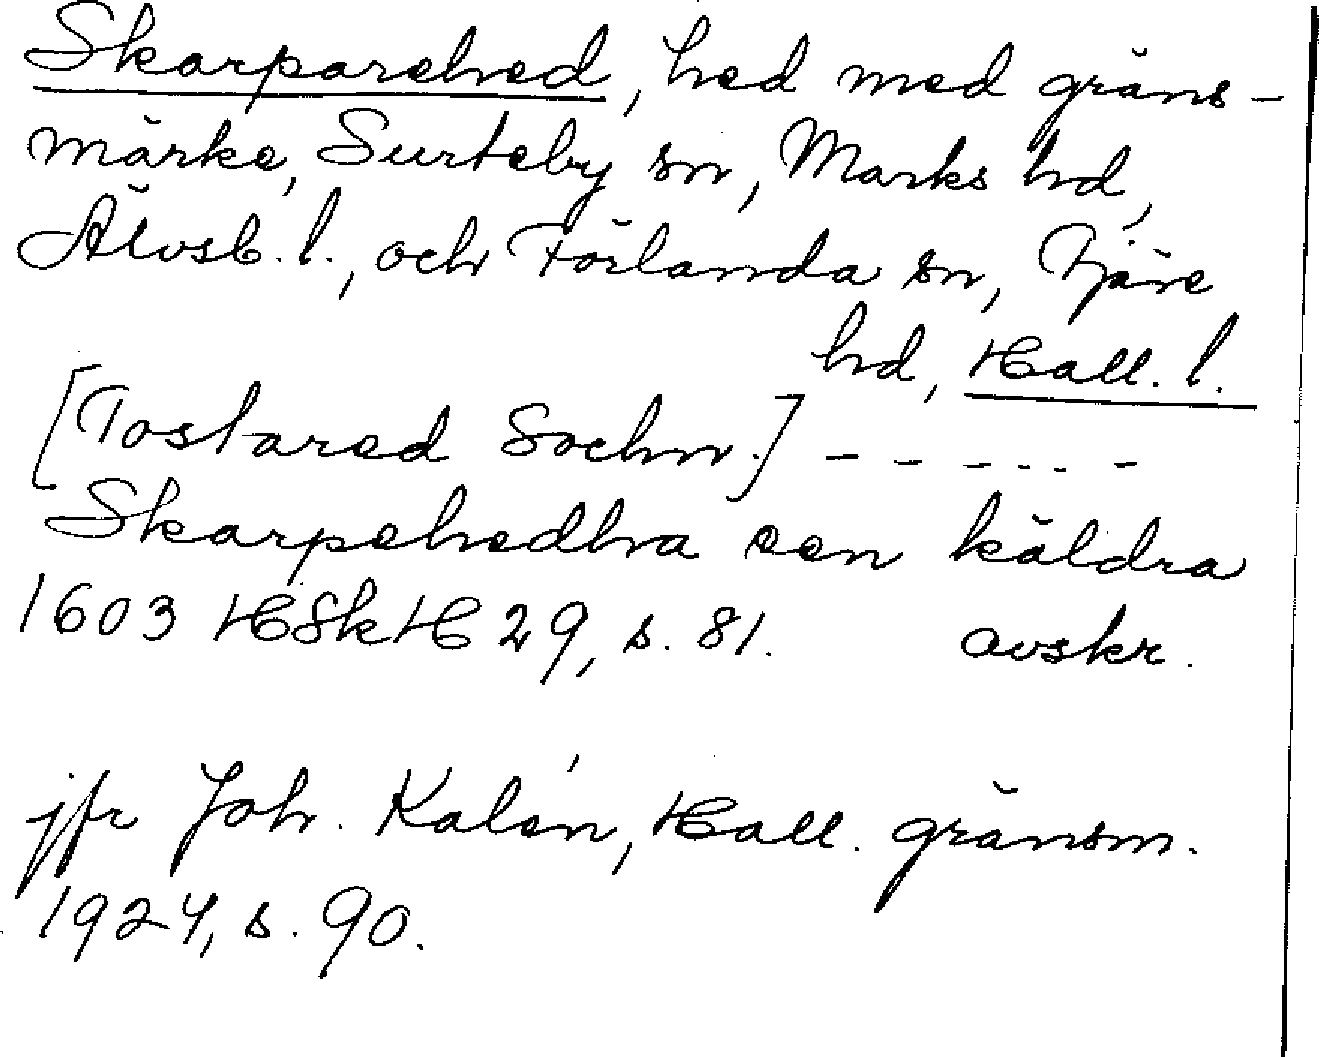 Skarparehed, hed med gräns-
märke, Surteby sn, Marks hd,
Älvsb. l., och Förlanda sn, Fjäre
hd, Hall. l.
[Tostared Sochn.] - - - - - -
Skarpehedha een käldra
1603 HSkH 29, s. 81. avskr.
jfr Joh. Kalén, Hall. gränsm.
1924, s. 90.